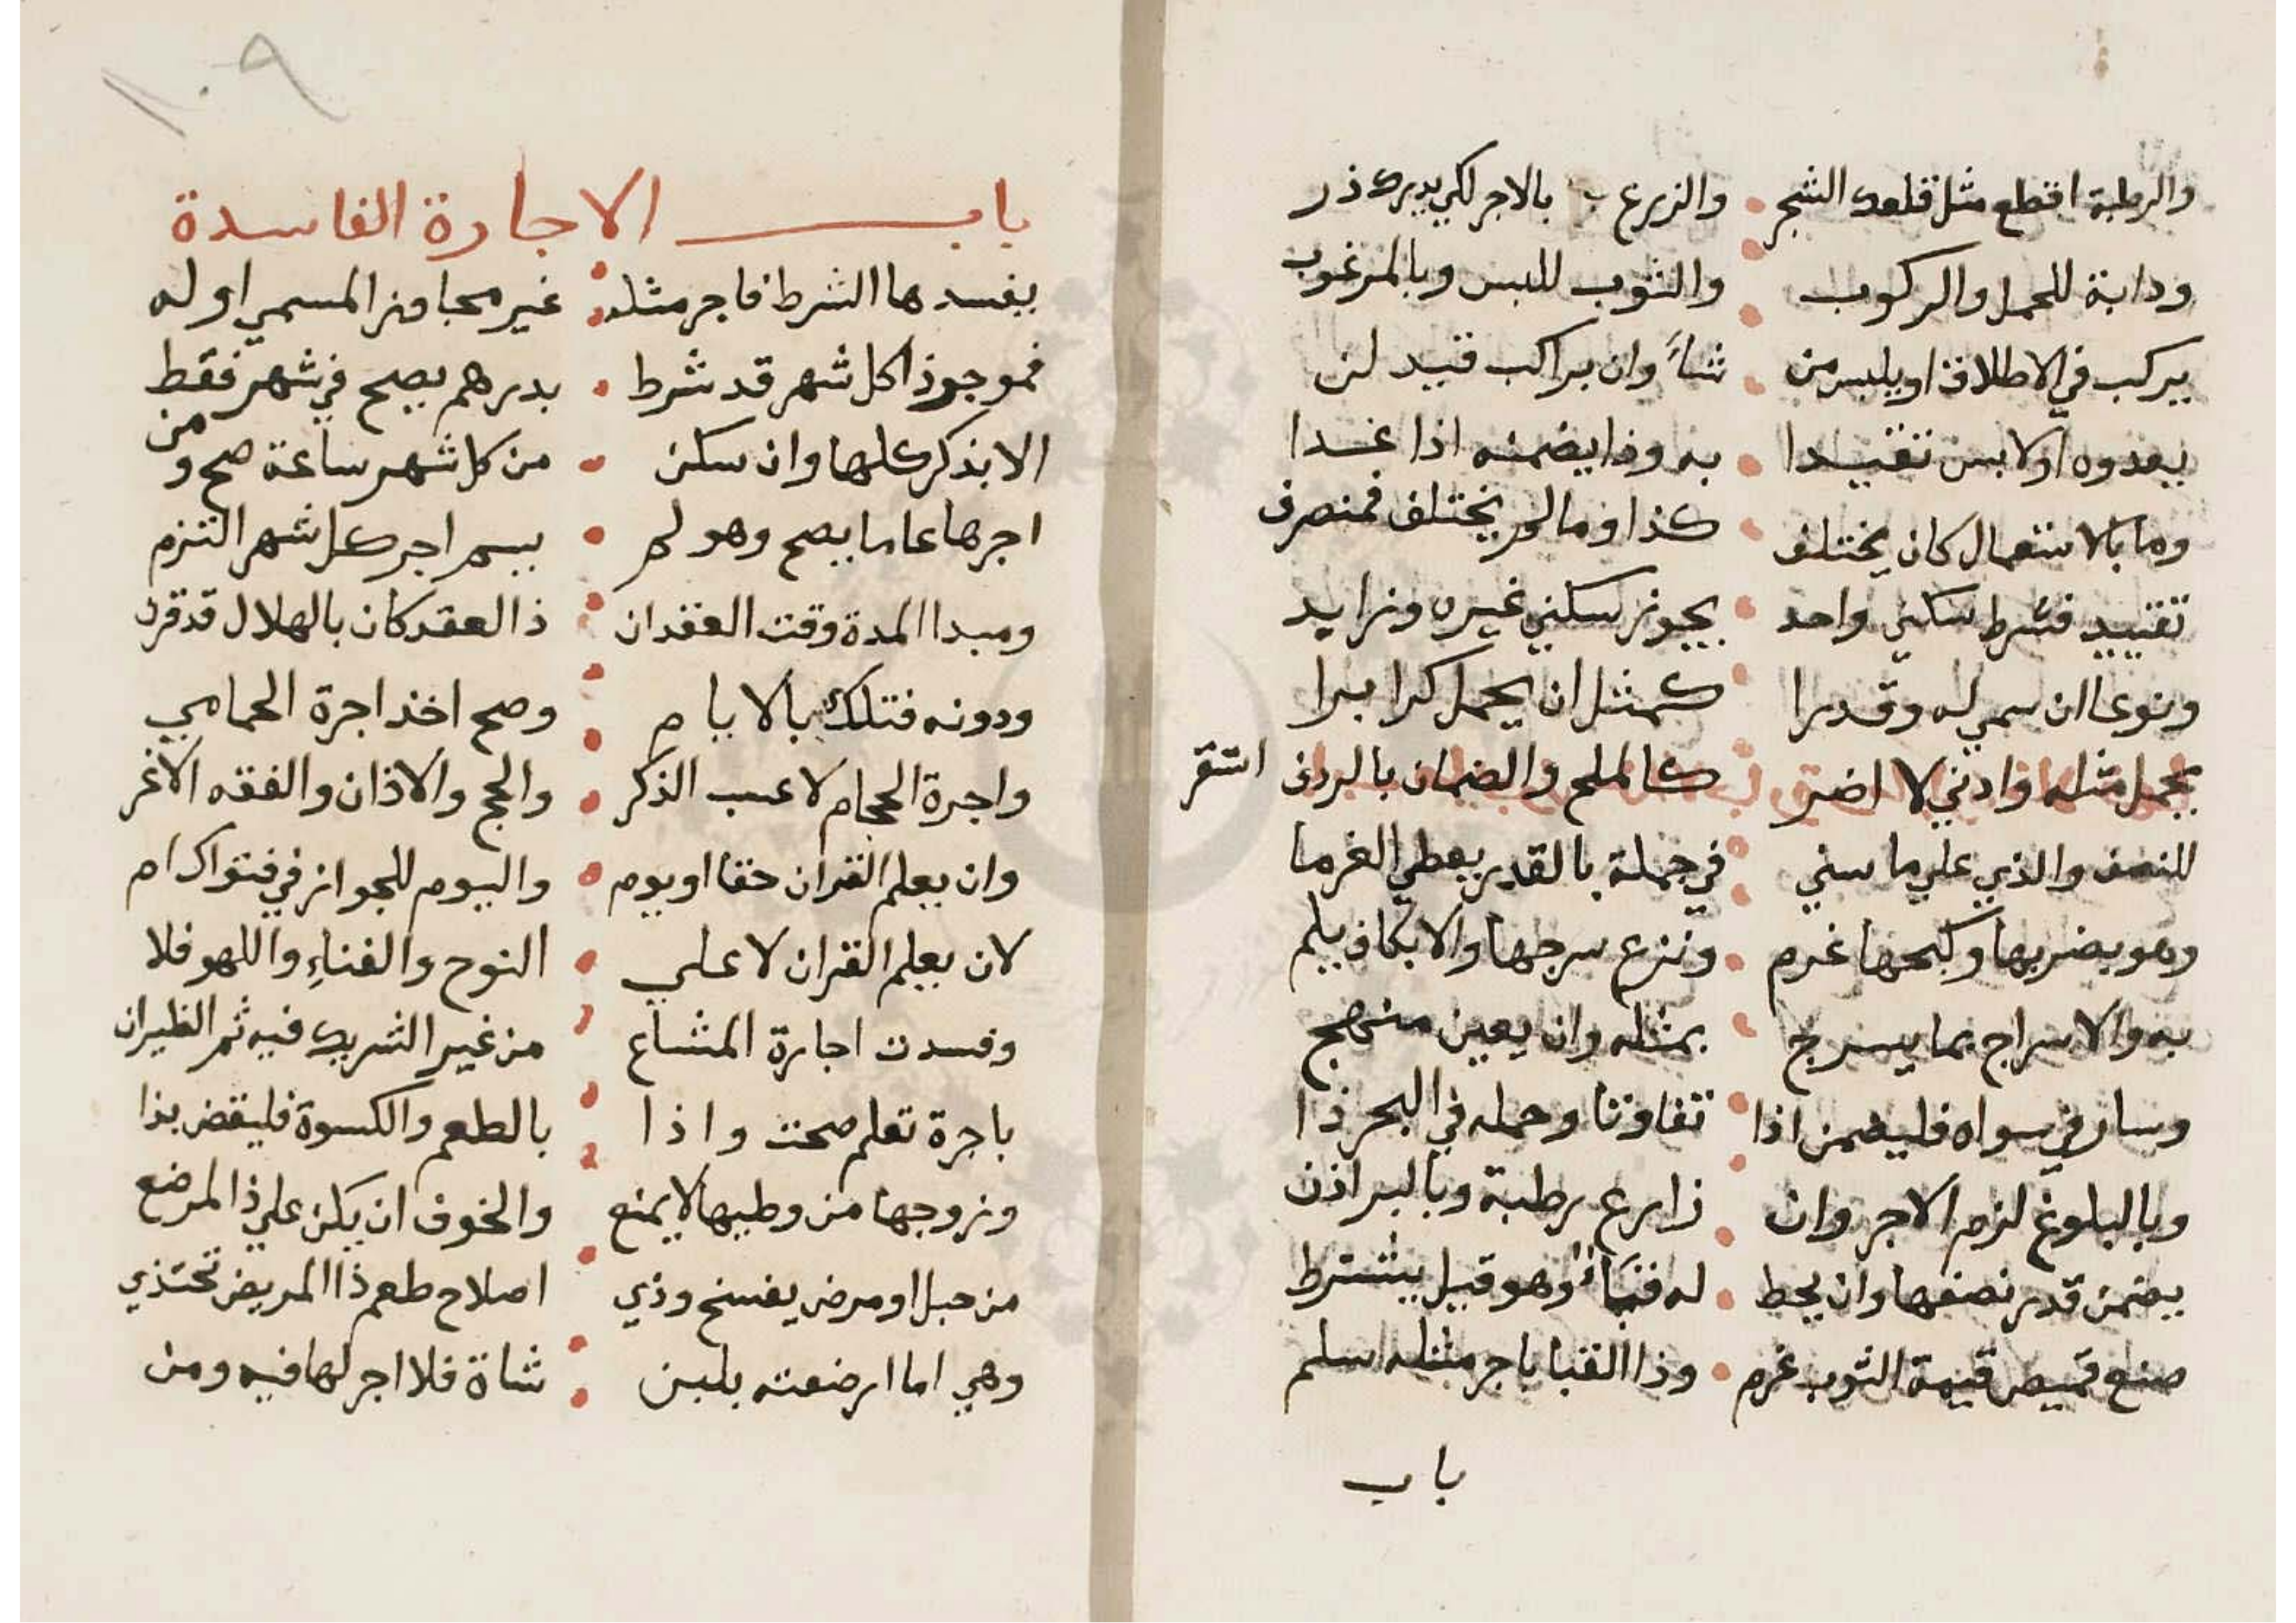 والرطبة اقطع مثل قلعك الشجر والزرع بالاجر لكي يدرك ذر
ودابة للحمل والركوب والثوب للبس وبالمرغوب
يركب في الاطلاق او يلبس من شاء وان براكب قيد لن
يعدوه او لابس تقييدا به وذا يضمنه اذا غدا
وما بالاستعمال كان يختلف كذا وما لم يختلف فمنصرف
تقييد فشرط سكنى واحد يجوز سكني غيره وزايد
ونوعا ان سمي له وقدرا كمثل ان يحمل كرا برا
يحمل مثله وادني لا اضر كالملح والضمان بالردف استقر
للنصف والذي علي ما سني في جملة بالقدر يعطي الغرما
وهو بضربها وكبحها غرم ونزع سرجها والايكاف يلم
به والاسراج بما يسرج بمثله وان يعين منهج
وسار في سواه فليضمن اذا تفاوتا وحمله في البحر ذا
وبالبلوغ لزم الاجر وان زارع رطبة وبالبر اذن
يضمن قدر نصفها وان يخط له قباء وهو قبيل يشترط
صنع قميص قيمة الثوب غرم وذا القبا باجر مثله سلم
باب
١٠٩
باب الاجارة الفاسدة
يفسدها الشرط فاجر مثله غير مجاوز المسمي او له
فموجر ذا كل شهر قد شرط بدرهم يصح في شهر فقط
الا بذكر كلها وان سكن من كل شهر ساعة صح ومن
اجرها عاما يصح وهو لم يسم اجر كل شهر التزم
ومبدا المدة وقت العقد ان ذا العقد كان بالهلال قد قرن
ودونه فتلك بالايام وصح اخذ اجرة الحمامي
واجرة الحجام لا عسب الذكر والحج والاذان والفقه الاغر
وان يعلم القران حقا او يوم واليوم للجواز في فتواك ام
لان يعلم القران لا علي النوح والغناء واللهو فلا
وفسدت اجارة المشاع من غير الشريك فيه ثم الظيران
باجرة تعلم صحت واذا بالطعم والكسوة فليقض بذا
وزوجها من وطيها لا يمنع والخوف ان يكن علي ذا المرضع
من حبل او مرض يفسخ وذي اصلاح طعم ذا المريض تحتذي
وهي اما ارضعته بلبن شاة فلا اجر لها فيه ومن